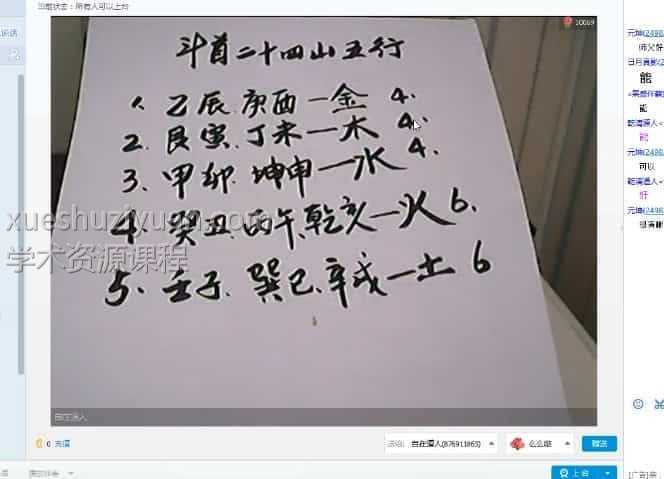 当前状态：所有人可以上台
10069
斗首二十四山五行
1、乙辰、庚酉一金 4、
2、艮寅、丁未一木 4、
3、甲卯、坤申一水 4、
4、癸丑、丙午、乾亥一火 6、
5、壬子、巽巳、辛戌一土 6
xueshuziyuan.com
学术资源课程
自在道人
0 充值
送给: 自在道人(876911863)
么么哒
赠送
上台
元坤(2498
师父好
日月真影(2
能
能
乾清道人<
能
元坤(2498
可以
乾清道人<
好
元坤(2498
很清晰
[广告]亲，